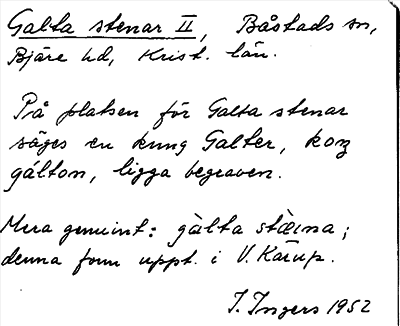 Galta stenar II, Båstads sn,
Bjäre hd, Krist. län.
På platsen för Galta stenar
säges en kung Galter, kong
gálton, ligga begraven.
Mera genuint: gàlta stæ̀ina;
denna form uppt. i V. Karup.
I. Ingers 1952